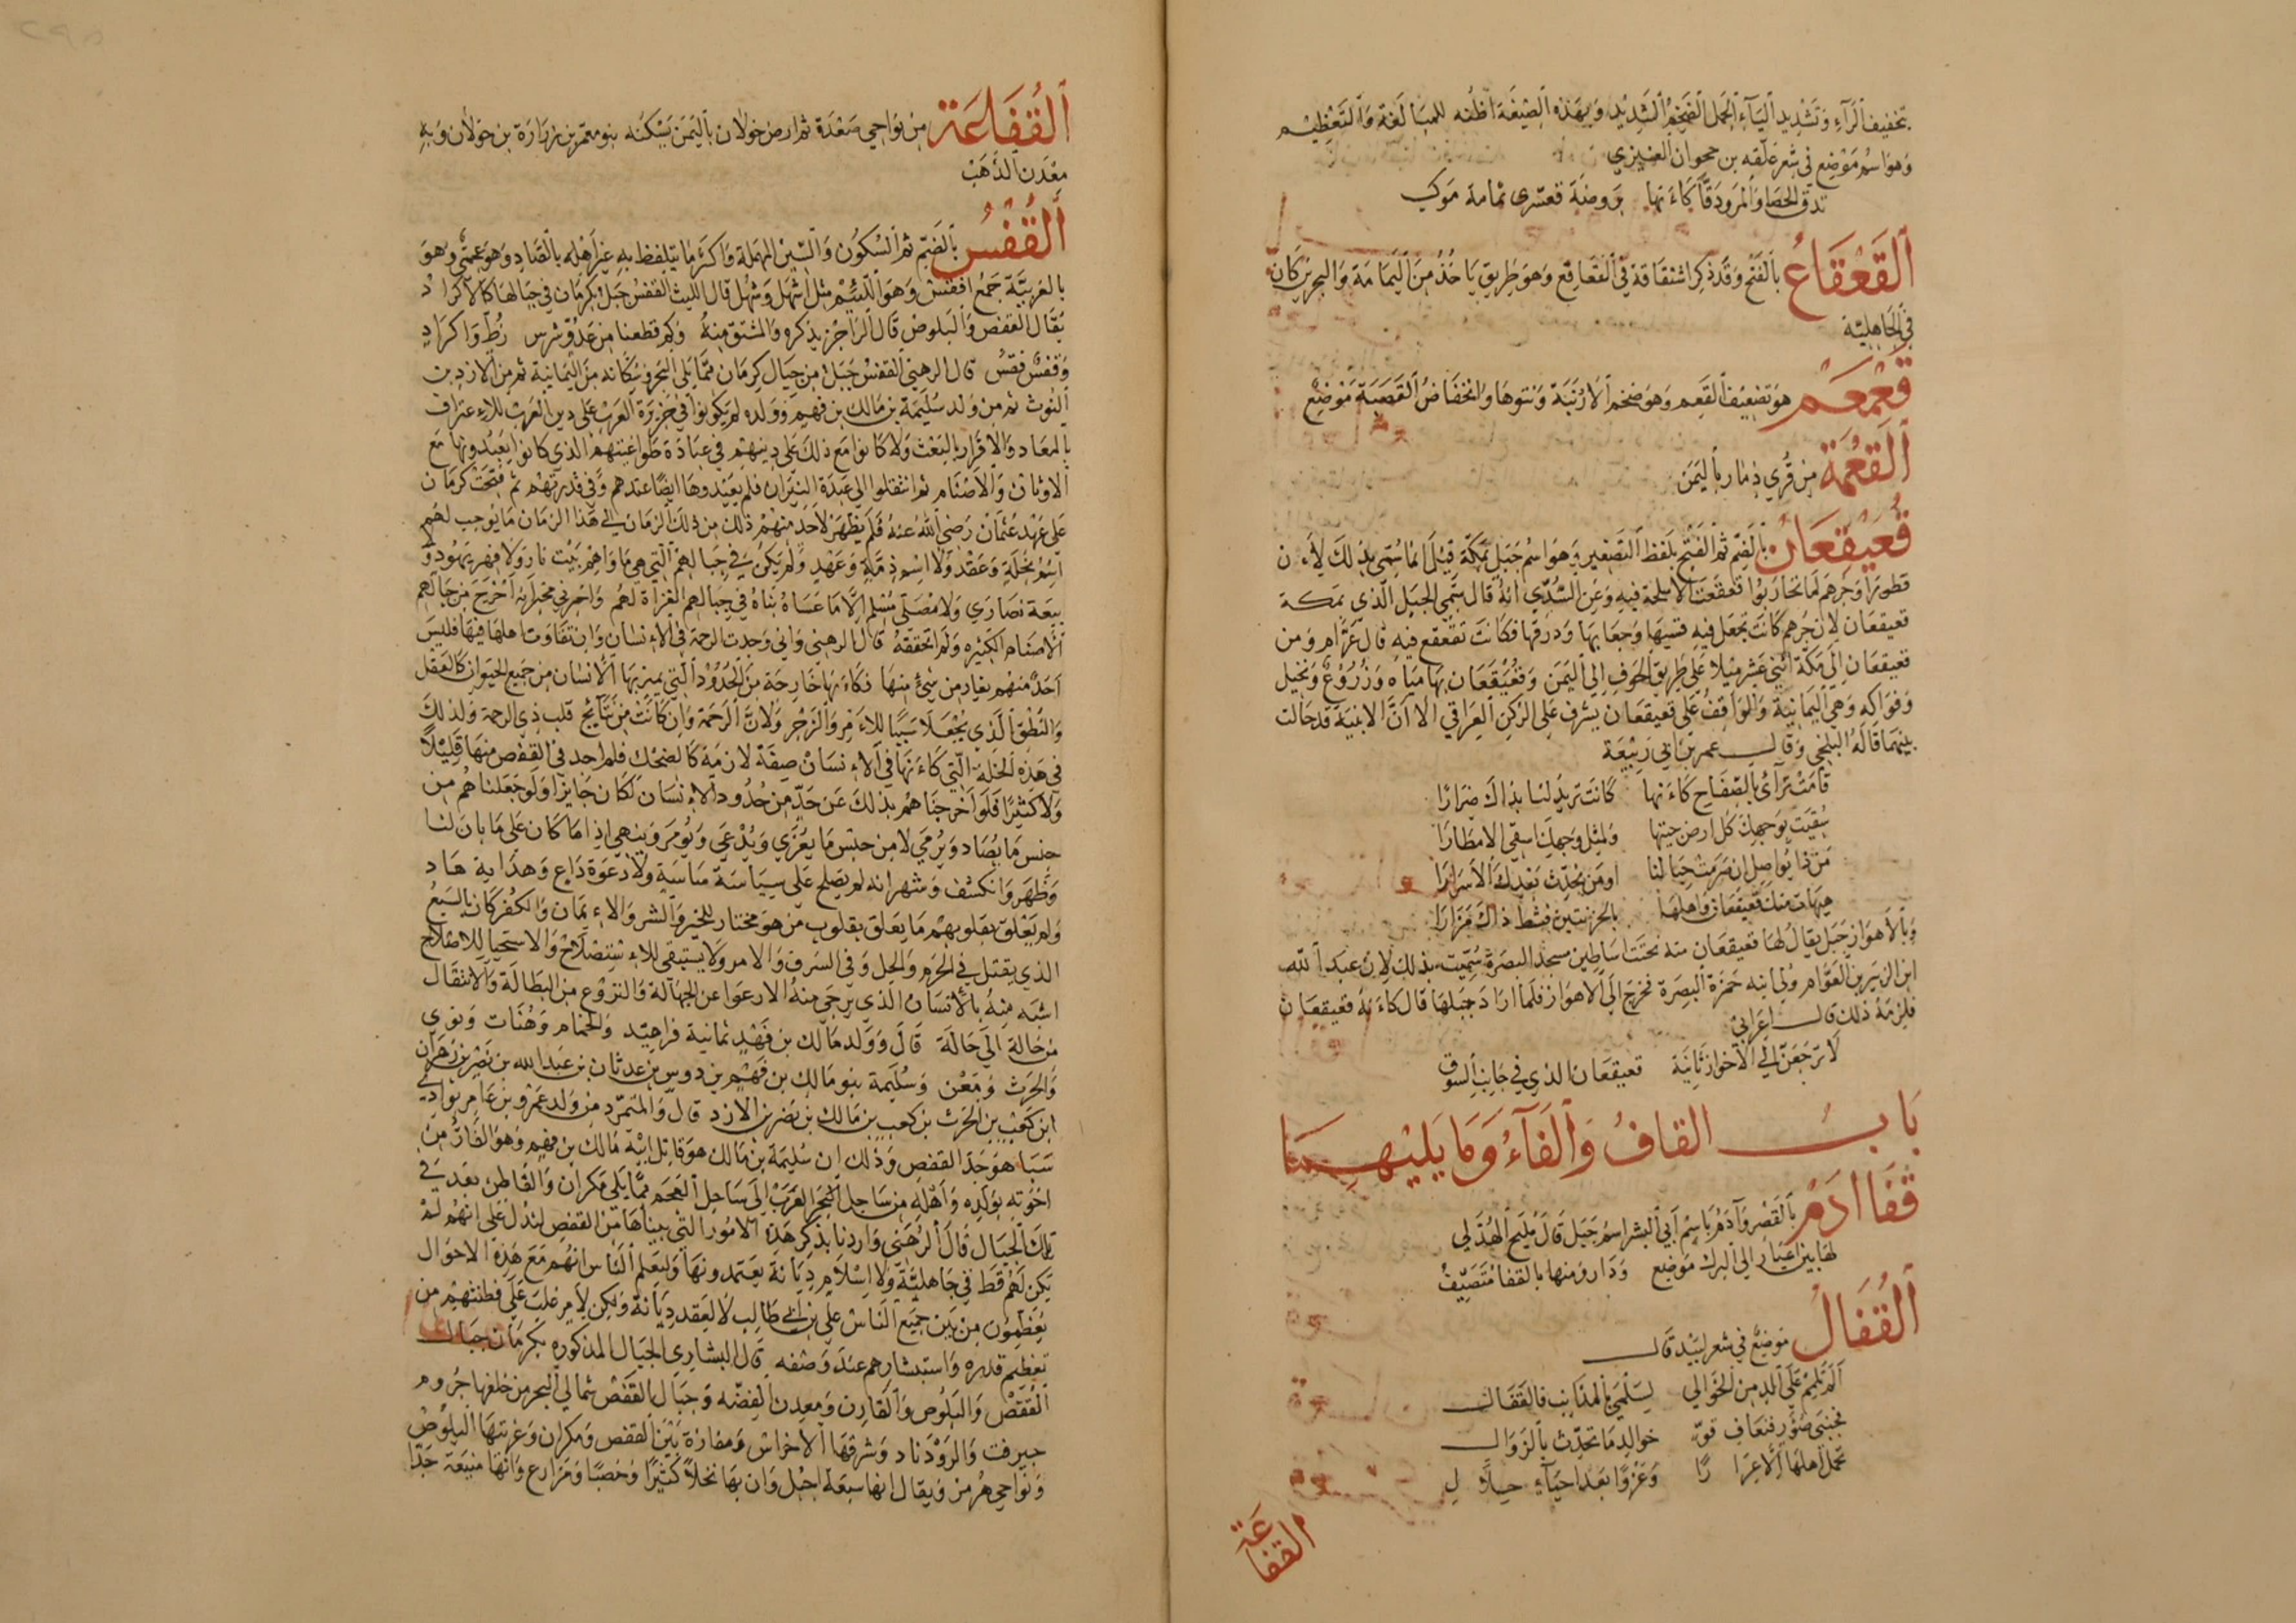 بتخفيف الرآء وتشديد اليآء الجمل الضخم الشديد وبهذه الصيغة اظنه للمبالغة والتعظيم
وهو اسم موضع في شعر علقه بن جحوان العنبزي
تدق الحصا والمرو دقا كاءنها بروضة قعسرى ثمامة موكب
القعقاع بالفتح وقد ذكر اشتقاقة في القعاقع وهو طريق ياخذ من اليمامة والبحرين كان
في الجاهلية
قعمعم هو تضعيف القعم وهو ضخم الارنبة ونتوها وانخفاض القصبة موضع
القعمة من قري ذمار باليمن
قعيقعان بالضم ثم الفتح بلفظ التصغير وهو اسم جبل بمكة قيل انما سمي بذلك لاءن
قطورا وجرهم لما تحاربوا قعقعت الاسلحة فيه وعن السدي انه قال سمي الجبل الذي بمكة
قعيقعان لان جرهم كانت تجعل فيه قسيها وجعابها ودرقها فكانت تقعقع فيه قال عرام ومن
قعيقعان الي مكة اثني عشر ميلا علي طريق الحوف الي اليمن وقعيقعان بها مياه وزروع ونخيل
وفواكه وهي اليمانية والواقف علي قعيقعان يشرف علي الركن العراقي الا ان الابنية قد حالت
بينهما قاله البلخي وقال عمر بن ابي ربيعة
قامت ترآئ بالصفاح كاءنها كانت تريد لنا بذاك ضرارا
سقيت بوجهك كل ارض جيتها ولمثل وجهك اسقي الامطارا
من ذا يواصل ان صرمت حبالنا او من نحدث بعدك الاسرارا
هيهات منك قعيقعان واهلها بالحزنتين فشط ذاك مزارا
وبالاهواز جبل يقال لها قعيقعان منه نحتت اساطين مسجد البصرة سميت بذلك لان عبد الله
ابن الزبير بن العوام ولي ابنه حمزة البصرة فخرج الي الاهواز فلما اراد جبلها قال كاءنه قعيقعان
فلزمه ذلك قال اعرابي
لا ترجعن الي الاحواز ثانية قعيقعان الذي في جانب السوق
باب القاف والفآء وما يليهما
قفا ادم بالقصر وآدم باسم ابي البشر اسم جبل قال مليح الهذلي
لها بين اعيار الي البرك موضع ودار ومنها بالقفا متصيف
القفال موضع في شعر لبيد قال
الم تلمم علي الدمن الخوالي لسلمي بالمذانب فالقفال
بجنبي صوءر فنعاف قو خوالد ما تحدث بالزوال
تحمل اهلها الا عرارا وعزفا بعد احيآء حلال
القفاعة
القفاعة من نواحي صعدة ثم ارض خولان باليمن يسكنه بنو معمر بن زرارة بن خولان وبه
معدن الذهب
القفس بالضم ثم السكون والسين المهملة واكثر ما يتلفظ به غير اهله بالصاد وهو عجمي وهو
بالعربية جمع اقفس وهو اللئيم مثل اشهل وشهل قال الليث القفس جبل بكرمان في جبالها كالاكراد
يقال القفص والبلوص قال الراجز يذكره والمشتق منه وكم قطعنا من عدو شرس زط واكراد
وقفس قفس قال الرهني القفس جبل من جبال كرمان مما يلي البحر وسكانه من اليمانية ثم من الازد بن
الغوث ثم من ولد سليمة بن مالك بن فهم وولده لم يكونوا في جزيرة العرب علي دين العرب للاءعتراف
بالمعاد والاقرار بالبعث ولا كانوا مع ذلك علي دينهم في عبادة طواغيتهم الذي كانوا يعبدونها مع
الاوثان والاصنام ثم انتقلوا الي عبدة النيران فلم يعبدوها ايضا عندهم وفي قدرتهم ثم فتحت كرمان
علي عهد عثمان رضي الله عنه فلم يظهر لاحد منهم ذلك من ذلك الزمان الي هذا الزمان ما يوجب لهم
اسم نحلة وعقد ولا اسم ذمة وعهد ولم يكن في جبالهم التي هي ماواهم بيت نار ولا فهر يهود و
بيعة نصاري ولا مصلي مسلم الا ما عساه بناه في جبالهم الغزاة لهم واخبرني مخبر انه اخرج من جبالهم
الاصنام الكثيره ولم اتحققه قال الرهني واني وجدت الرحمة في الاءنسان وان تفاوت اهلها فيها فليس
احد منهم يغار من شئ منها فكاءنها خارجة من الحدود التي يميز بها الانسان من جميع الحيوان كالعقل
والنطق الذي يجعلا سببا للاءمر والزجر ولان الرحمة وان كانت من نتآئج قلب ذي الرحمة ولذلك
في هذه الخلة التي كاءنها في الاءنسان صفة لازمة كالضحك فلم اجد في القفص منها قليلا
ولا كثيرا فلو اخرجناهم بذلك عن حد من حدود الاءنسان لكان جايزا ولو جعلناهم من
جنس ما يصاد ويرمي لا من جنس ما يغزي ويدعي ويومر وينهي اذا ما كان علي ما بان لنا
وظهر وانكشف وشهر انه لم يصلح علي سياسة سايس ولا دعوة داع وهداية هاد
ولم يعلق بقلوبهم ما يعلق بقلوب من هو مختار للخير والشر والاءيمان والكفر كان السبع
الذي يقتل في الحرم والحل وفي السرف والامر ولا يستبقي للاءستصلاح والاستحيا للاصلاح
اشبه منه بالانسان الذي يرجي منه الارعوا عن الجهالة والنزوع من البطالة والانتقال
من حالة الي حالة قال وولد مالك بن فهد ثمانية فراهيد والخمام وهناة ونوي
والحرث ومعن وسليمة بنو مالك بن فهم بن دوس بن عدثان بن عبد الله بن نصر بن زهران
ابن كعب بن الحرث بن كعب بن مالك بن نصر بن الازد قال والمتمرد من ولد عمرو بن عامر بوادي
سبا هو جد القفص وذلك ان سليمة بن مالك هو قاتل ابيه مالك بن فهم وهو الفار من
اخوته بولده واهله من ساحل البحر العرب الي ساحل العجم مما يلي مكران والقاطن بعد في
تلك الجبال قال الرهني واردنا بذكر هذه الامور التي بيناها من القفص لندل علي انهم لم
يكن لهم قط في جاهلية ولا اسلام ديانة يعتمدونها وليعلم الناس انهم مع هذه الاحوال
يعظمون من بين جميع الناس علي بن ابي طالب لا لعقد ديانة ولكن لامر غلب علي فطنتهم من
تعظيم قدره واستبشارهم عند وصفه قال البشاري الجبال المذكوره بكرمان جبال
القفص والبلوص والقارن ومعدن الفضه وجبال القفص شمالي البحر من خلفها جروم
جيرفت والروذبار وشرقها الاخواش ومفازة بين القفص ومكران وغربها البلوص
ونواحي هرمز ويقال انها سبعة اجبل وان بها نخلا كثيرا وخصبا ومزارع وانها منيعة جدا